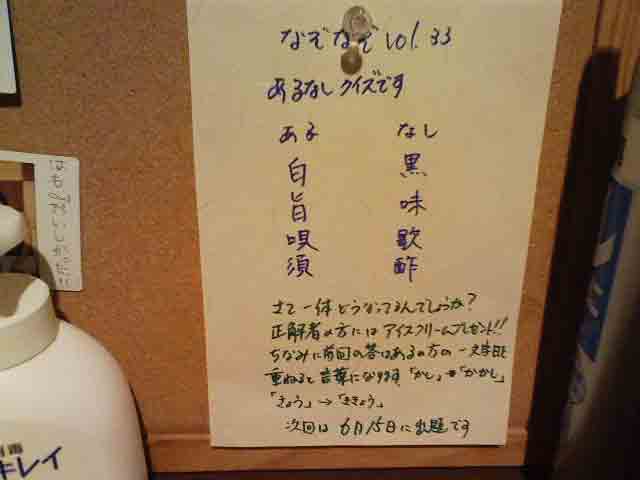 なぞなぞ vol.33
あるなしクイズです
ある なし
白 黒
旨 味
唄 歌
須 酢
さて一体どうなってるんでしょうか?
正解者の方にはアイスクリームプレゼント!!
ちなみに前回の答はあるの方の一文字目を
重ねると言葉になります。「かし」→「かかし」
「きょう」→「ききょう」
次回は6月15日に出題です
キレイ